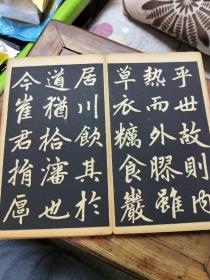 乎世故則内
熱而外膠雖
草衣糲食巖
居川飲其於
道猶拾瀋也
今崔君捐厚